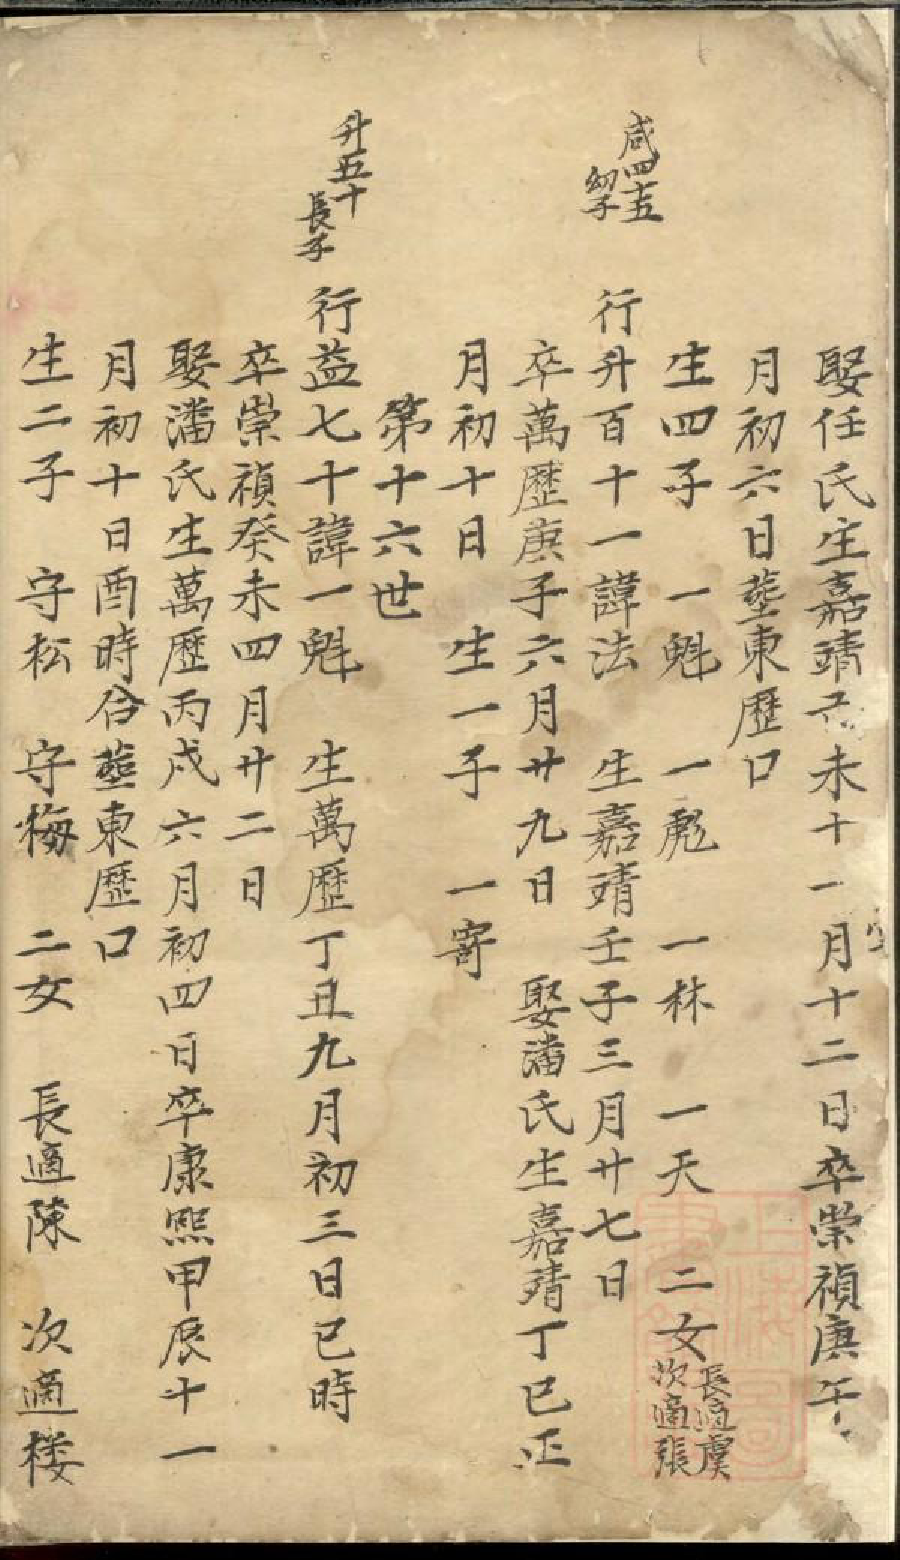 娶任氏生嘉靖 未十一月十二日卒崇禎庚午
月初六日塟東歷口
生四子 一魁 一彪 一林 一天 二女 長適虞 次適張
咸四十五 幼子
行升百十一諱法 生嘉靖壬子三月廿七日
卒萬歷庚子六月廿九日 娶潘氏生嘉靖丁巳正
月初十日 生一子 一寄
第十六世
升五十 長子
行益七十諱一魁 生萬歷丁丑九月初三日巳時
卒崇禎癸未四月廿二日
娶潘氏生萬歷丙戌六月初四日卒康熙甲辰十一
月初十日酉時合塟東歷口
生二子 守松 守梅 二女 長適陳 次適楼